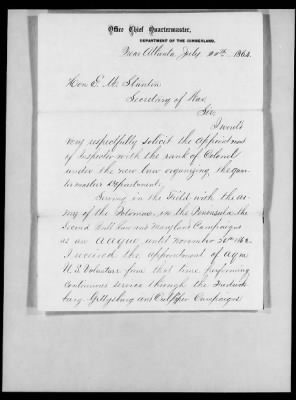 Office Chief Quartermaster,
DEPARTMENT OF THE CUMBERLAND.
Near Atlanta, July 20th, 1864.
Hon E. M. Stanton
Secretary of War
Sir,
I would
very respectfully solicit the appointment
of Inspector with the rank of Colonel
under the new law organizing the Quar-
termasters Department.
Serving in the Field with the ar-
my of the Potomac, in the Peninsula, the
Second Bull Run and Maryland Campaigns
as an a a q m, until November 20th 1862
I received the appointment of a q m
U. S. Volunteers from that time performing
continuous service through the Fredericks-
burg, Gettysburg and Culpeper Campaigns